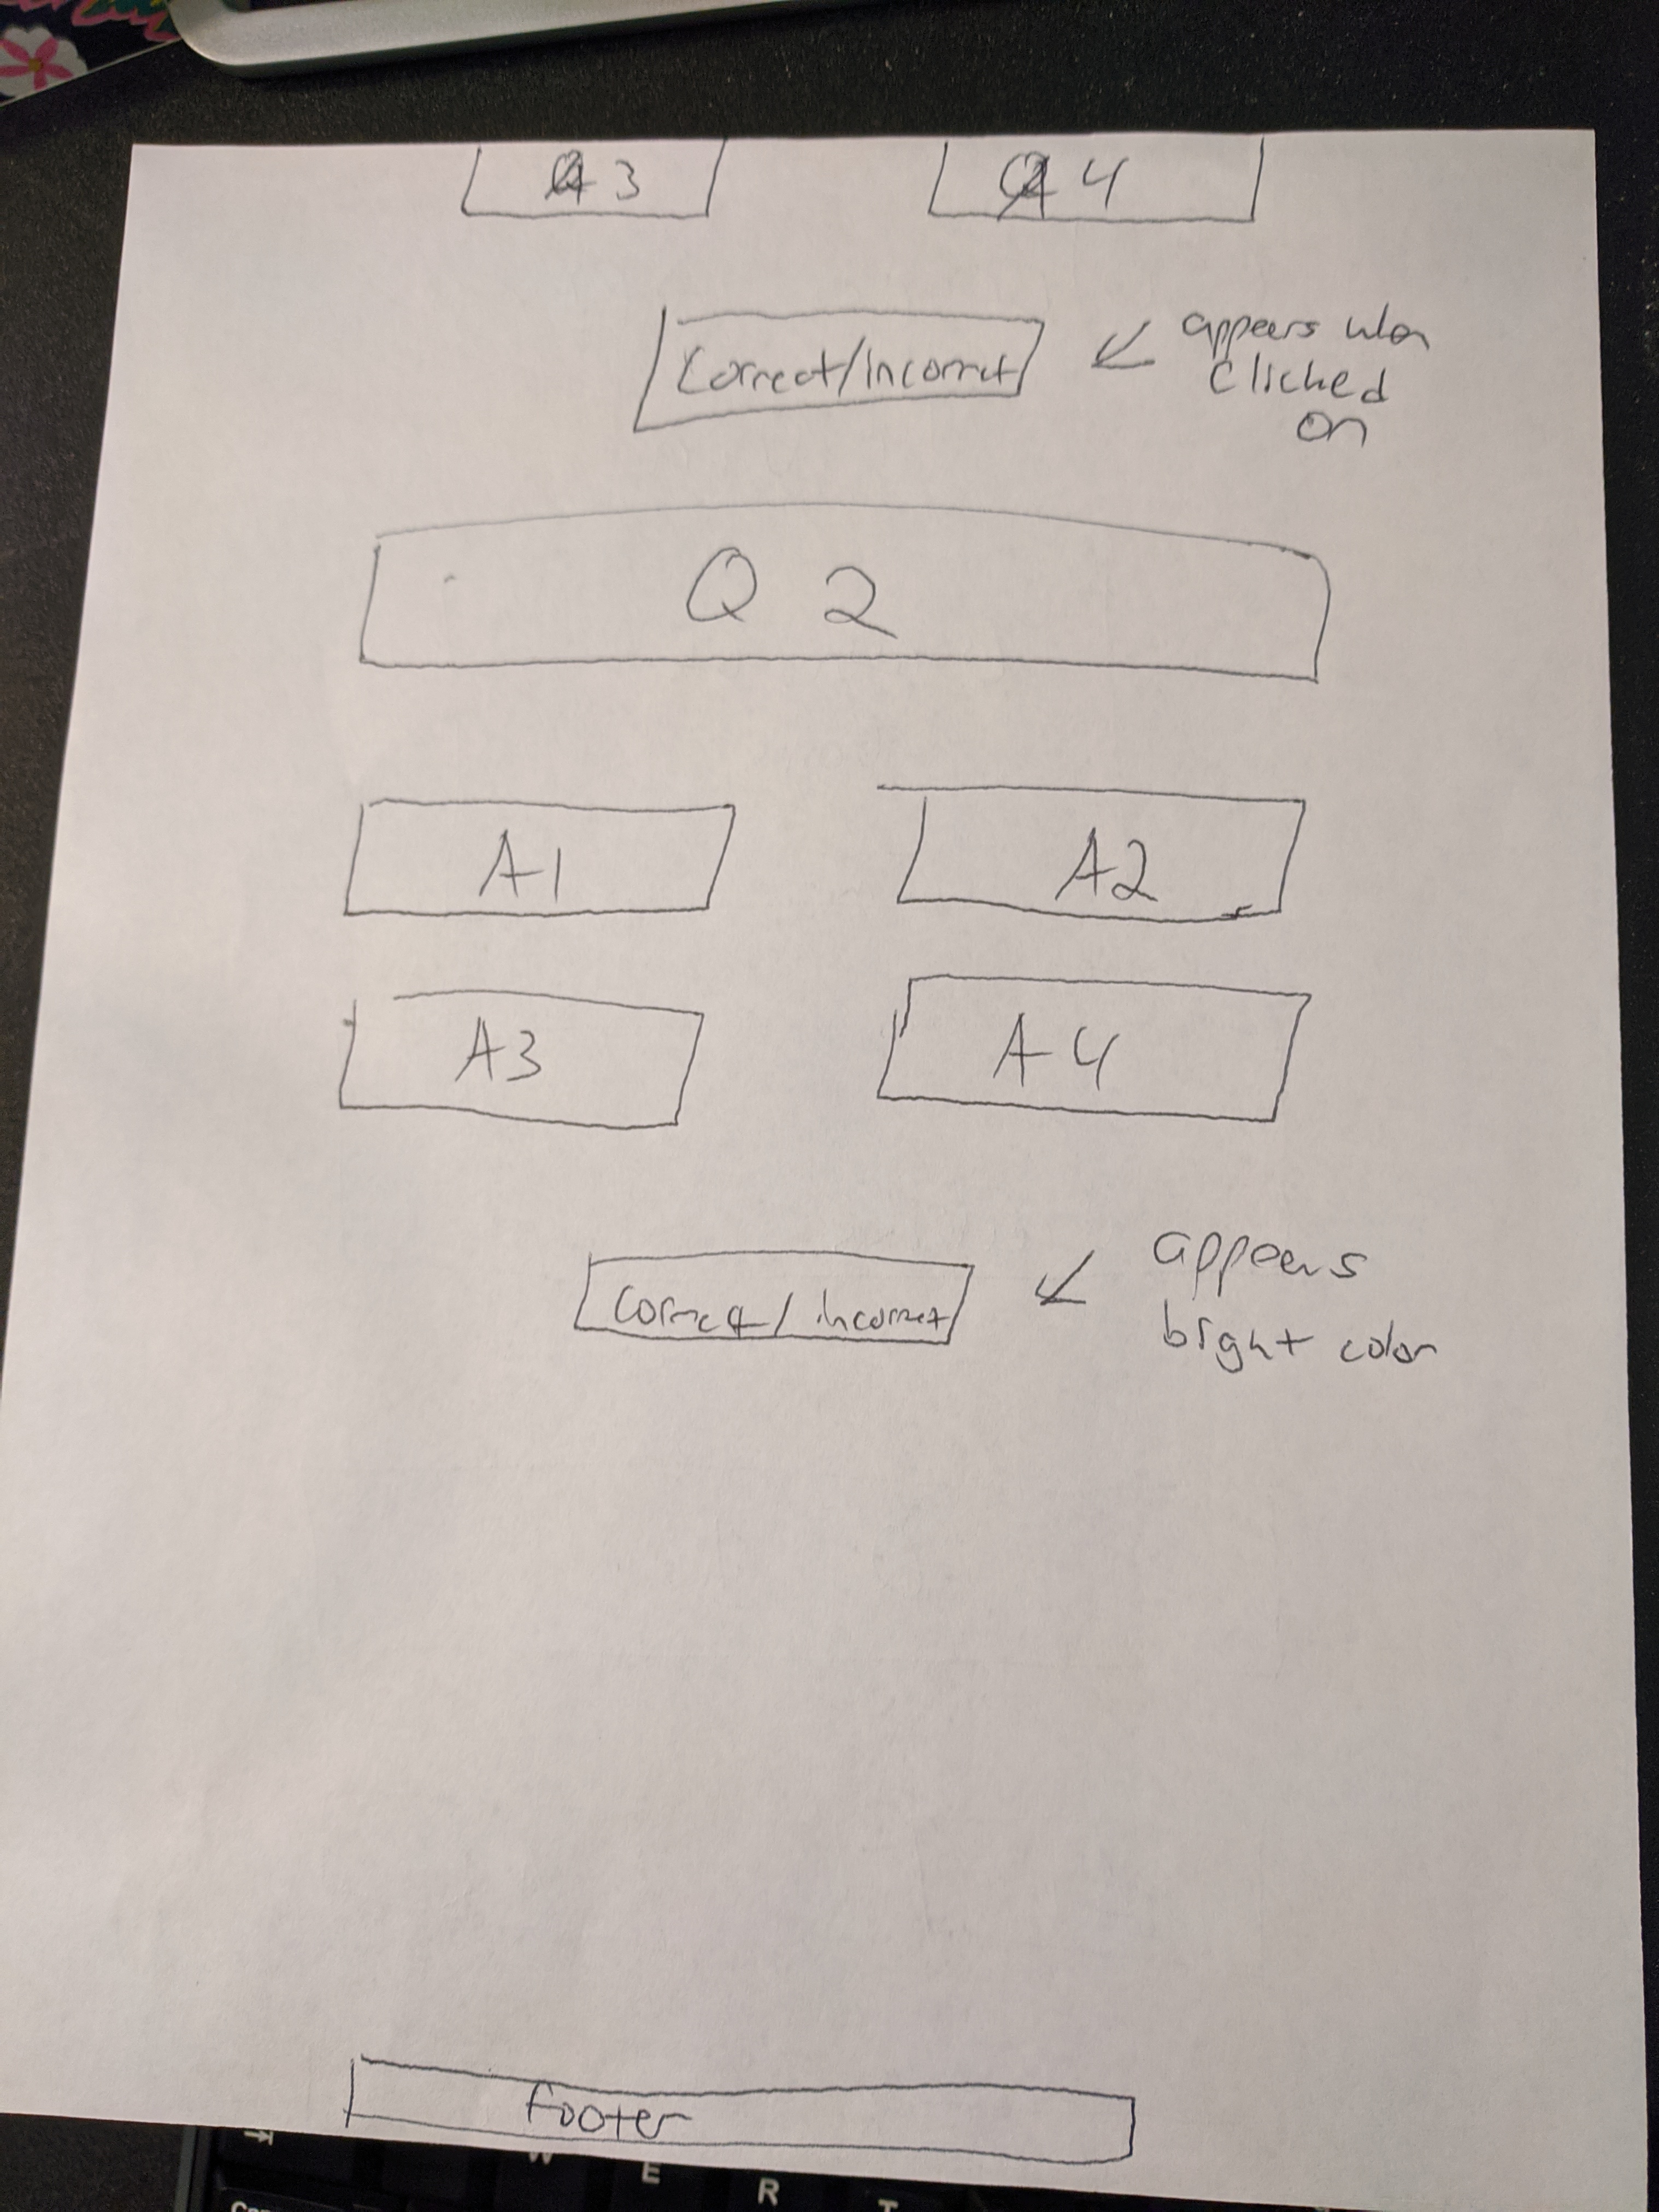 A3 A4
Correct/incorrect appears when
clicked
on
Q 2
A1 A2
A3 A4
Correct/incorrect appears
bright color
footer
W E R T